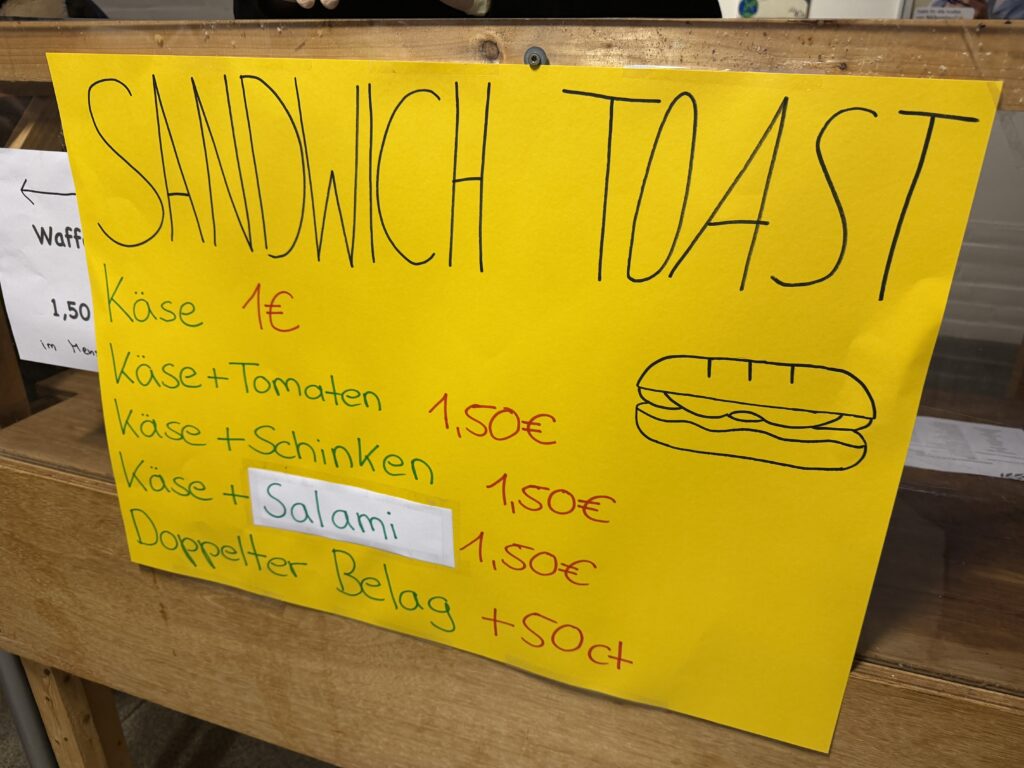 SANDWICH TOAST
Käse 1€
Käse + Tomaten 1,50€
Käse + Schinken 1,50€
Käse + Salami 1,50€
Doppelter Belag +50ct
1,50
im